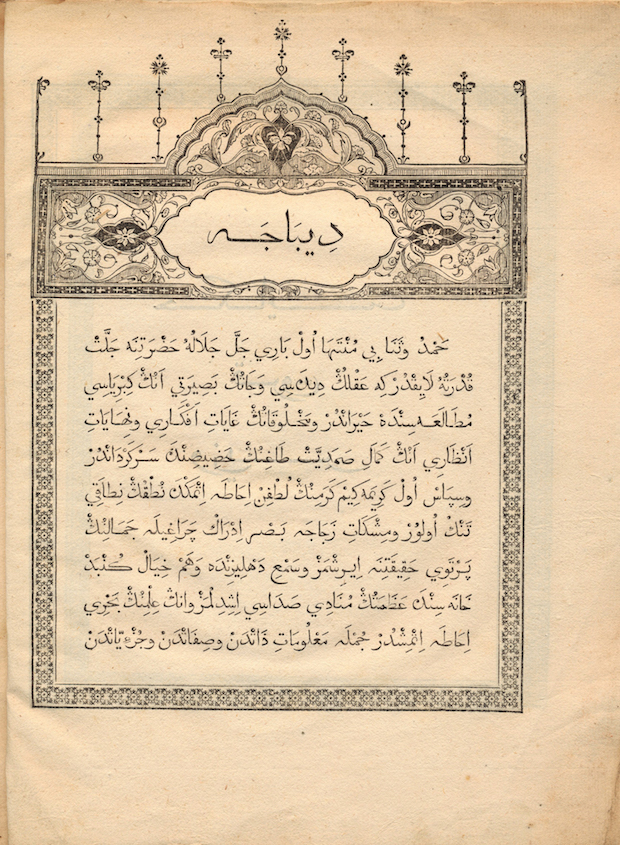 دِيبَاجَه
حَمْدْ وَثَنَا بِي مُنْتَهَا اُولْ بَارِي جَلَّ جَلَالُهُ حَضْرَتِنَه جَلَّتْ
قُدْرَتُهُ لَايِقْدُرْ كِه عَقْلُكْ دِيدَسِي وَجَانُكْ بَصِيرَتِي اَنُكْ كِبْرِيَاسِي
مُطَالَعَه سِنْدَه حَيْرَانْدُرْ وَمَخْلُوقَاتُكْ غَايَاتِ اَفْكَارِي وَنِهَايَاتِ
اَنْظَارِي اَنُكْ كَمَالِ صَمَدِيَّتْ طَاغِنُكْ حَضِيضِنْدَ سَرْكَرْدَانْدُرْ
وَسِپَاسْ اُولْ كَرِيمَه كِيمْ كَرَمِنُكْ لُطْفِنْ اِحَاطَه اِتْمَكْدَ نُطْقُكْ نِطَاقِي
تَنْكْ اُولُورْ وَمِشْكَاتِ زُجَاجَه بَصَرِ اِدْرَاكْ چَرَاغِيلَه جَمَالِنُكْ
پَرْتَوِي حَقِيقَتِنَه اِيرِشْمَزْ وَسَمْعِ دَهْلِيزِنْدَه وَهْمِ خِيَالْ كُنْبَدْ
خَانَه سِنْدَ عَظَمَتُكْ مُنَادِي صَدَاسِي اِشِدِلْمَزْ وَانُكْ عِلْمِنُكْ بَحْرِي
اِحَاطَه اِتْمِشْدُرْ جُمْلَه مَعْلُومَاتِ ذَاتْدَنْ وَصِفَاتْدَنْ وَجُزْءِيَّاتْدَنْ